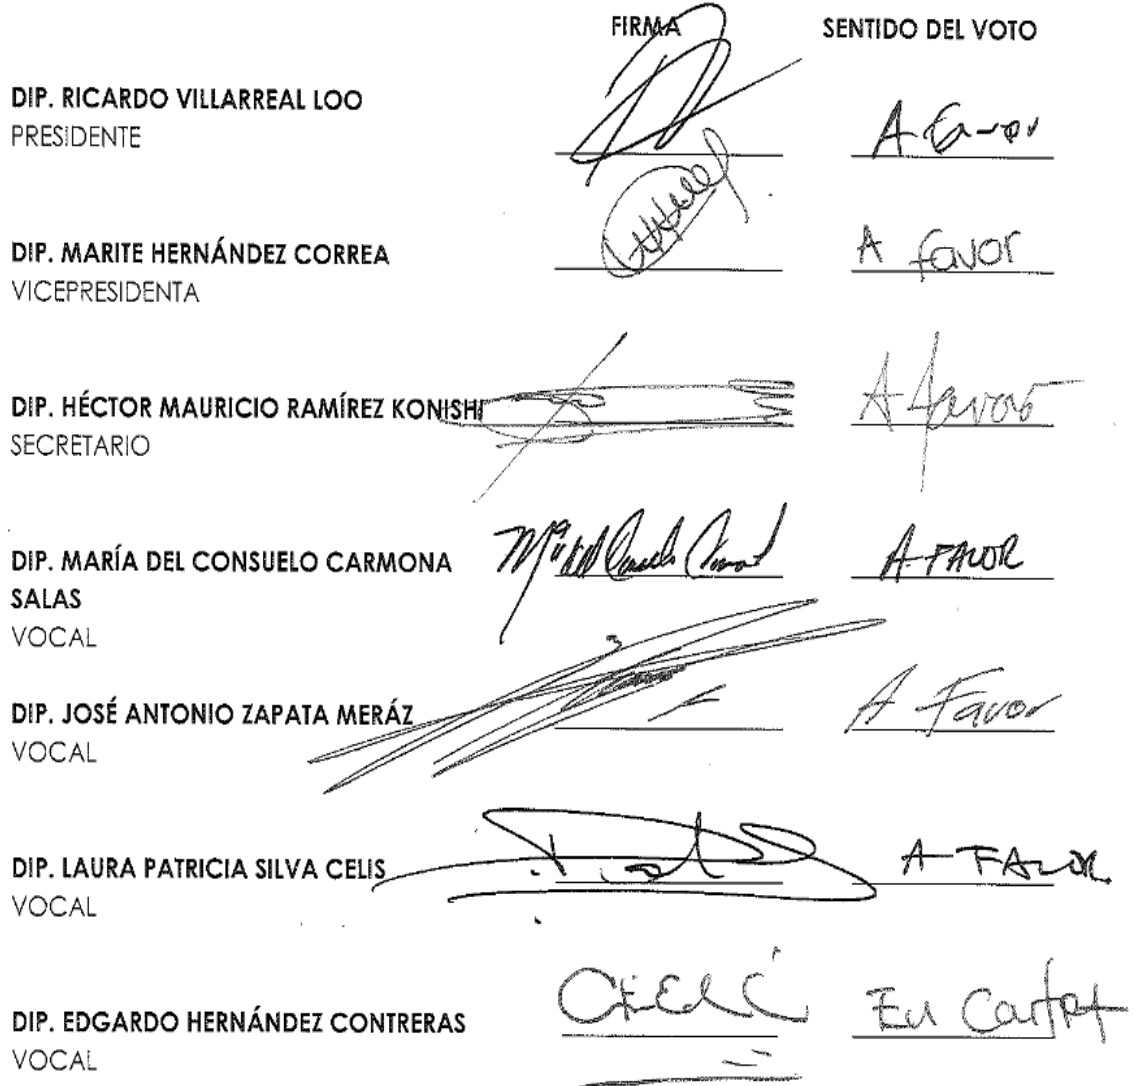 FIRMA SENTIDO DEL VOTO
DIP. RICARDO VILLARREAL LOO
PRESIDENTE
A favor
DIP. MARITE HERNÁNDEZ CORREA
VICEPRESIDENTA
A favor
DIP. HÉCTOR MAURICIO RAMÍREZ KONISHI
SECRETARIO
A favor
DIP. MARÍA DEL CONSUELO CARMONA
SALAS
VOCAL
A FAVOR
DIP. JOSÉ ANTONIO ZAPATA MERÁZ
VOCAL
A Favor
DIP. LAURA PATRICIA SILVA CELIS
VOCAL
A FAVOR
DIP. EDGARDO HERNÁNDEZ CONTRERAS
VOCAL
En Contra